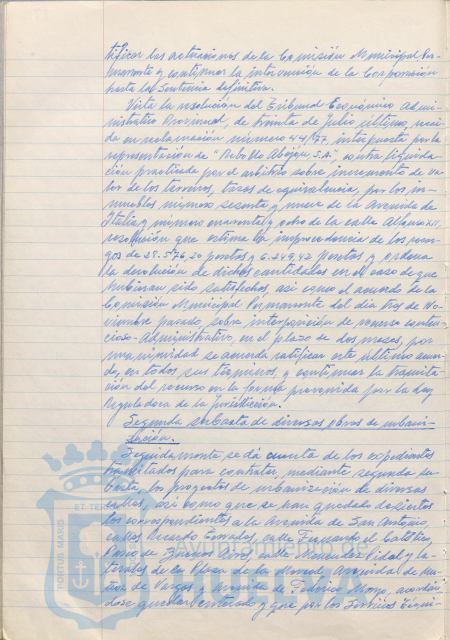 tificar las actuaciones de la Comisión Municipal Per-
manente y continuar la intervención de la Corporación
hasta la Sentencia definitiva.
Vista la resolución del Tribunal Económico Admi-
nistrativo Provincial, de treinta de Julio último, recaí-
da en reclamación número 44/77, interpuesta por la
representación de "Rebollo Abejón, S.A.", contra liquida-
ción practicada por el arbitrio sobre incremento de va-
lor de los terrenos, tasa de equivalencia, por los in-
muebles número sesenta y nueve de la Avenida de
Italia y número cuarenta y ocho de la calle Alfonso XII,
resolución que estima la improcedencia de los recar-
gos de 28.576,20 pesetas y 6.249,42 pesetas y ordena
la devolución de dichas cantidades en el caso de que
hubieran sido satisfechas así como el acuerdo de la
Comisión Municipal Permanente del día tres de No-
viembre pasado, sobre interposición de recurso conten-
cioso-Administrativo, en el plazo de dos meses, por
unanimidad se acuerda ratificar este último acuer-
do, en todos sus términos, y continuar la tramita-
ción del recurso en la forma prevenida por la Ley
Reguladora de la Jurisdicción.
Segunda subasta de diversas obras de urbani-
zación.
Seguidamente se dá cuenta de los expedientes
tramitados para contratar, mediante segunda su-
basta, los proyectos de urbanización de diversas
calles, así como que se han quedado desiertos
los correspondientes a la Avenida de San Antonio,
calles Ricardo Terrades, calle Fernando el Católico,
Paseo de Buenos Aires, calle Menéndez Pidal y la-
terales de la Plaza de la Merced, Avenida de Mu-
ñoz de Vargas y Avenida de Federico Mayo, acordán-
dose quedar enterado y que por los Servicios Técni-
PORTUS MARIS
ET TERRÆ